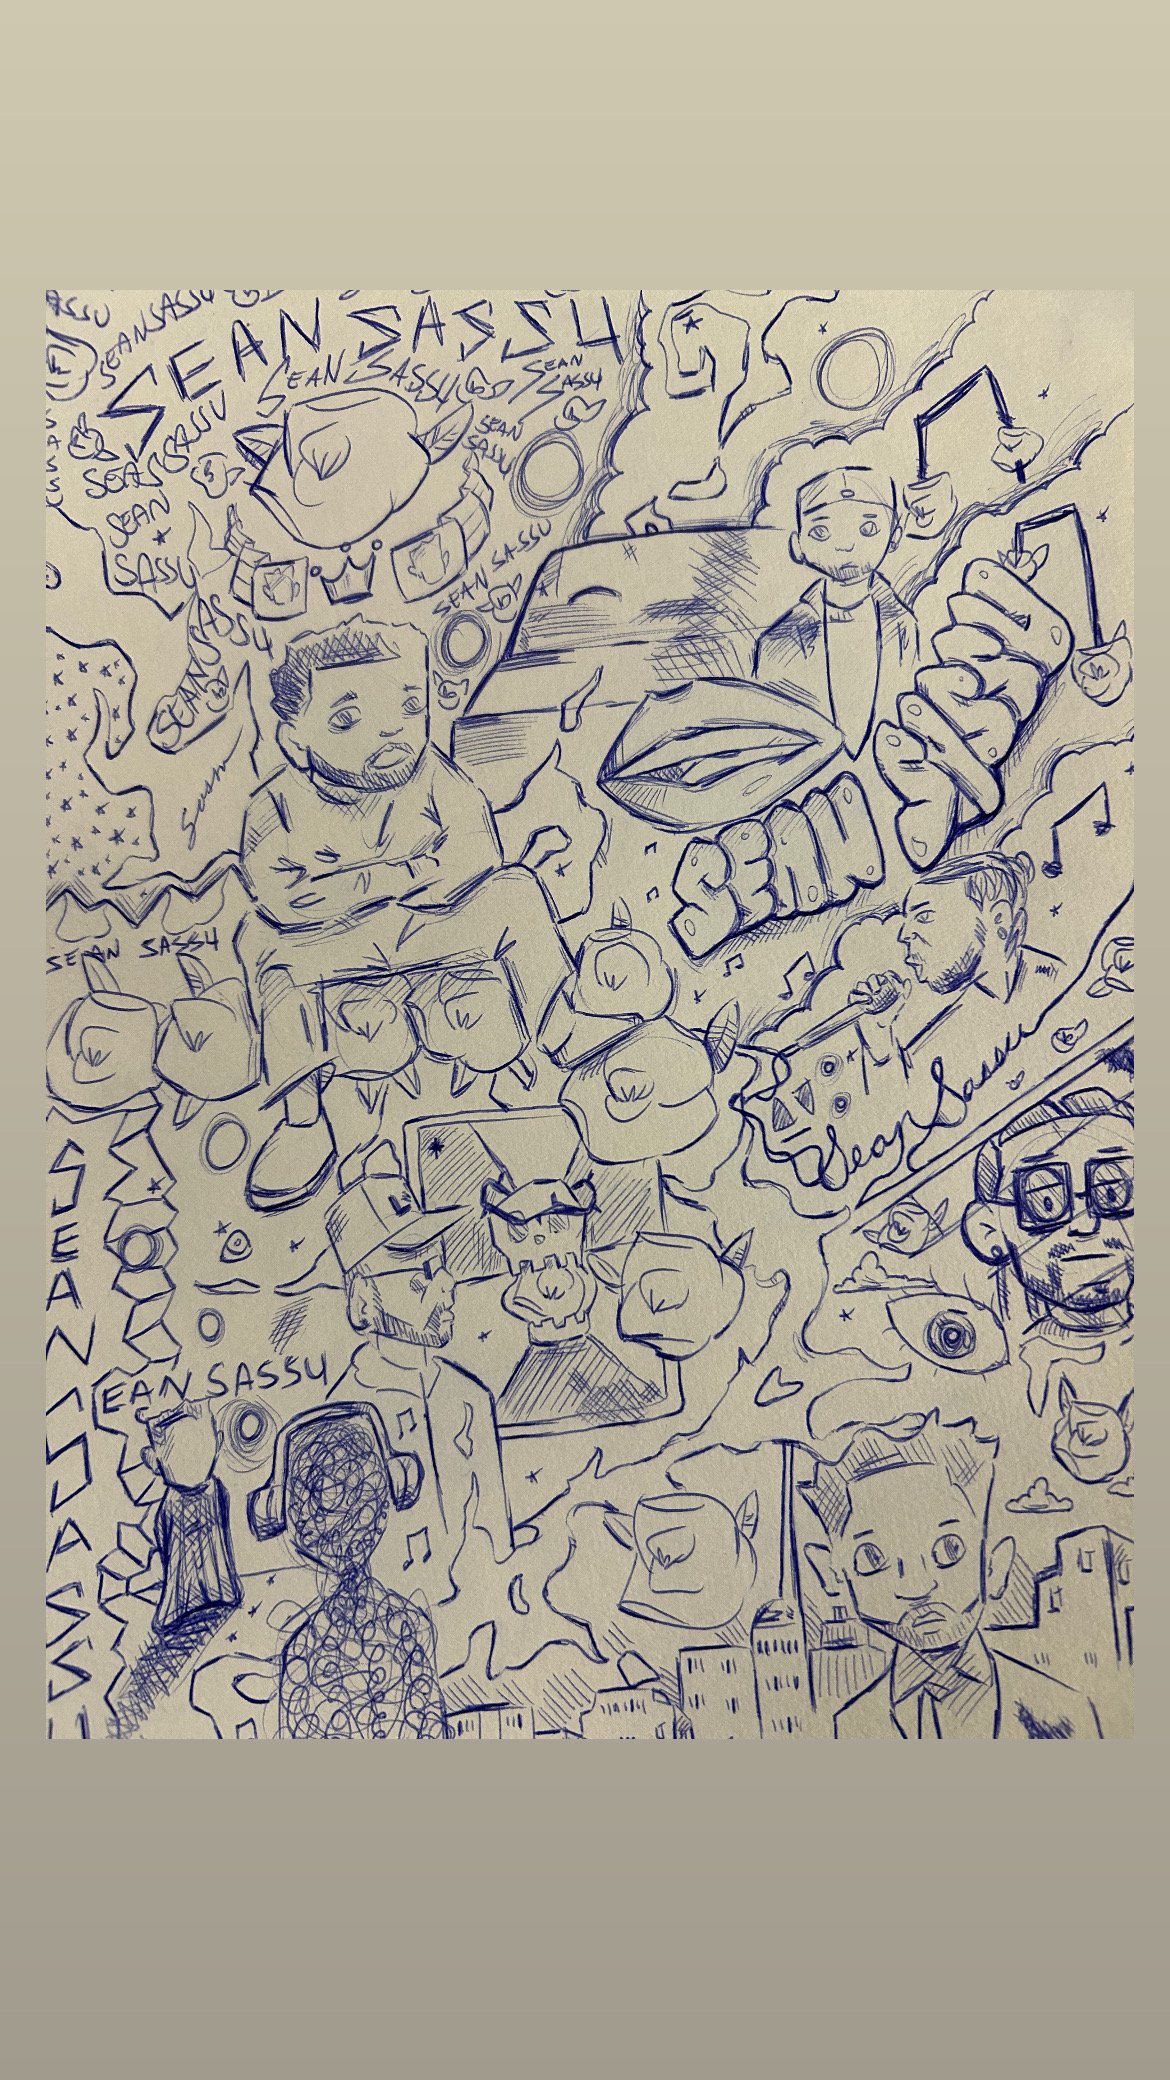 ASSU
SEAN SASSY
SEAN SASSY
SEAN SASSY
SEAN
SASSY
SEAN
SASSY
SEAN SASSY
SEAN
SASSY
SEAN SASSY
SEAN SASSY
SEAN
SASSY
SEAN SASSY
SEAN
SEAN SASSY
Sean Sassy
SEAN
SASS
EAN SASSY